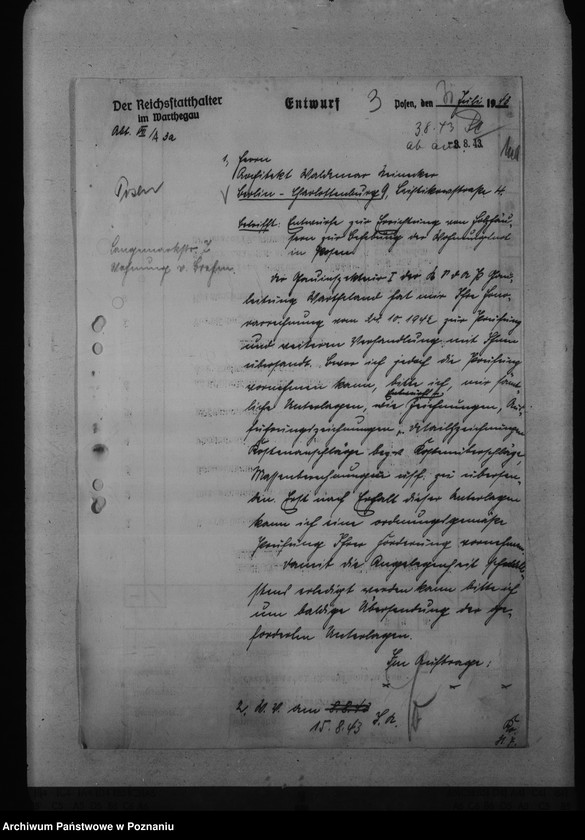 Der Reichsstatthalter
im Warthegau
Abt.
Entwurf
3
Posen, den Juli 19
38.43
ab am 8.8.43.
Posen
1, Herrn
Architekt Waldemar
Berlin - Charlottenburg 9, 4
Betrifft: Entwürfe zur Errichtung von Holzhäu-
sern zur Behebung der Wohnungsnot
in Posen.
Langemarckstr.
Wohnung v.
Der Gauinspekteur I der N S D A P Gau-
leitung Wartheland hat mir Ihre Hono-
rarrechnung vom 10. 1942 zur Prüfung
und weiteren Verhandlung mit Ihnen
übersandt. Bevor ich jedoch die Prüfung
vornehmen kann, bitte ich, mir sämt-
liche Unterlagen, wie Zeichnungen, Aus-
führungszeichnungen, Detailzeichnungen
Kostenanschläge bezw. Kostenüberschläge,
Massenberechnungen usf. zu übersen-
den. Erst nach Erhalt dieser Unterlagen
kann ich eine ordnungsgemäße
Prüfung Ihrer Forderung vornehmen.
Damit die Angelegenheit schnell-
stens erledigt werden kann bitte ich
um baldige Übersendung der ge-
forderten Unterlagen.
Im Auftrage:
2, W. V. am 8.8.43
15.8.43
Archiwum Państwowe w Poznaniu